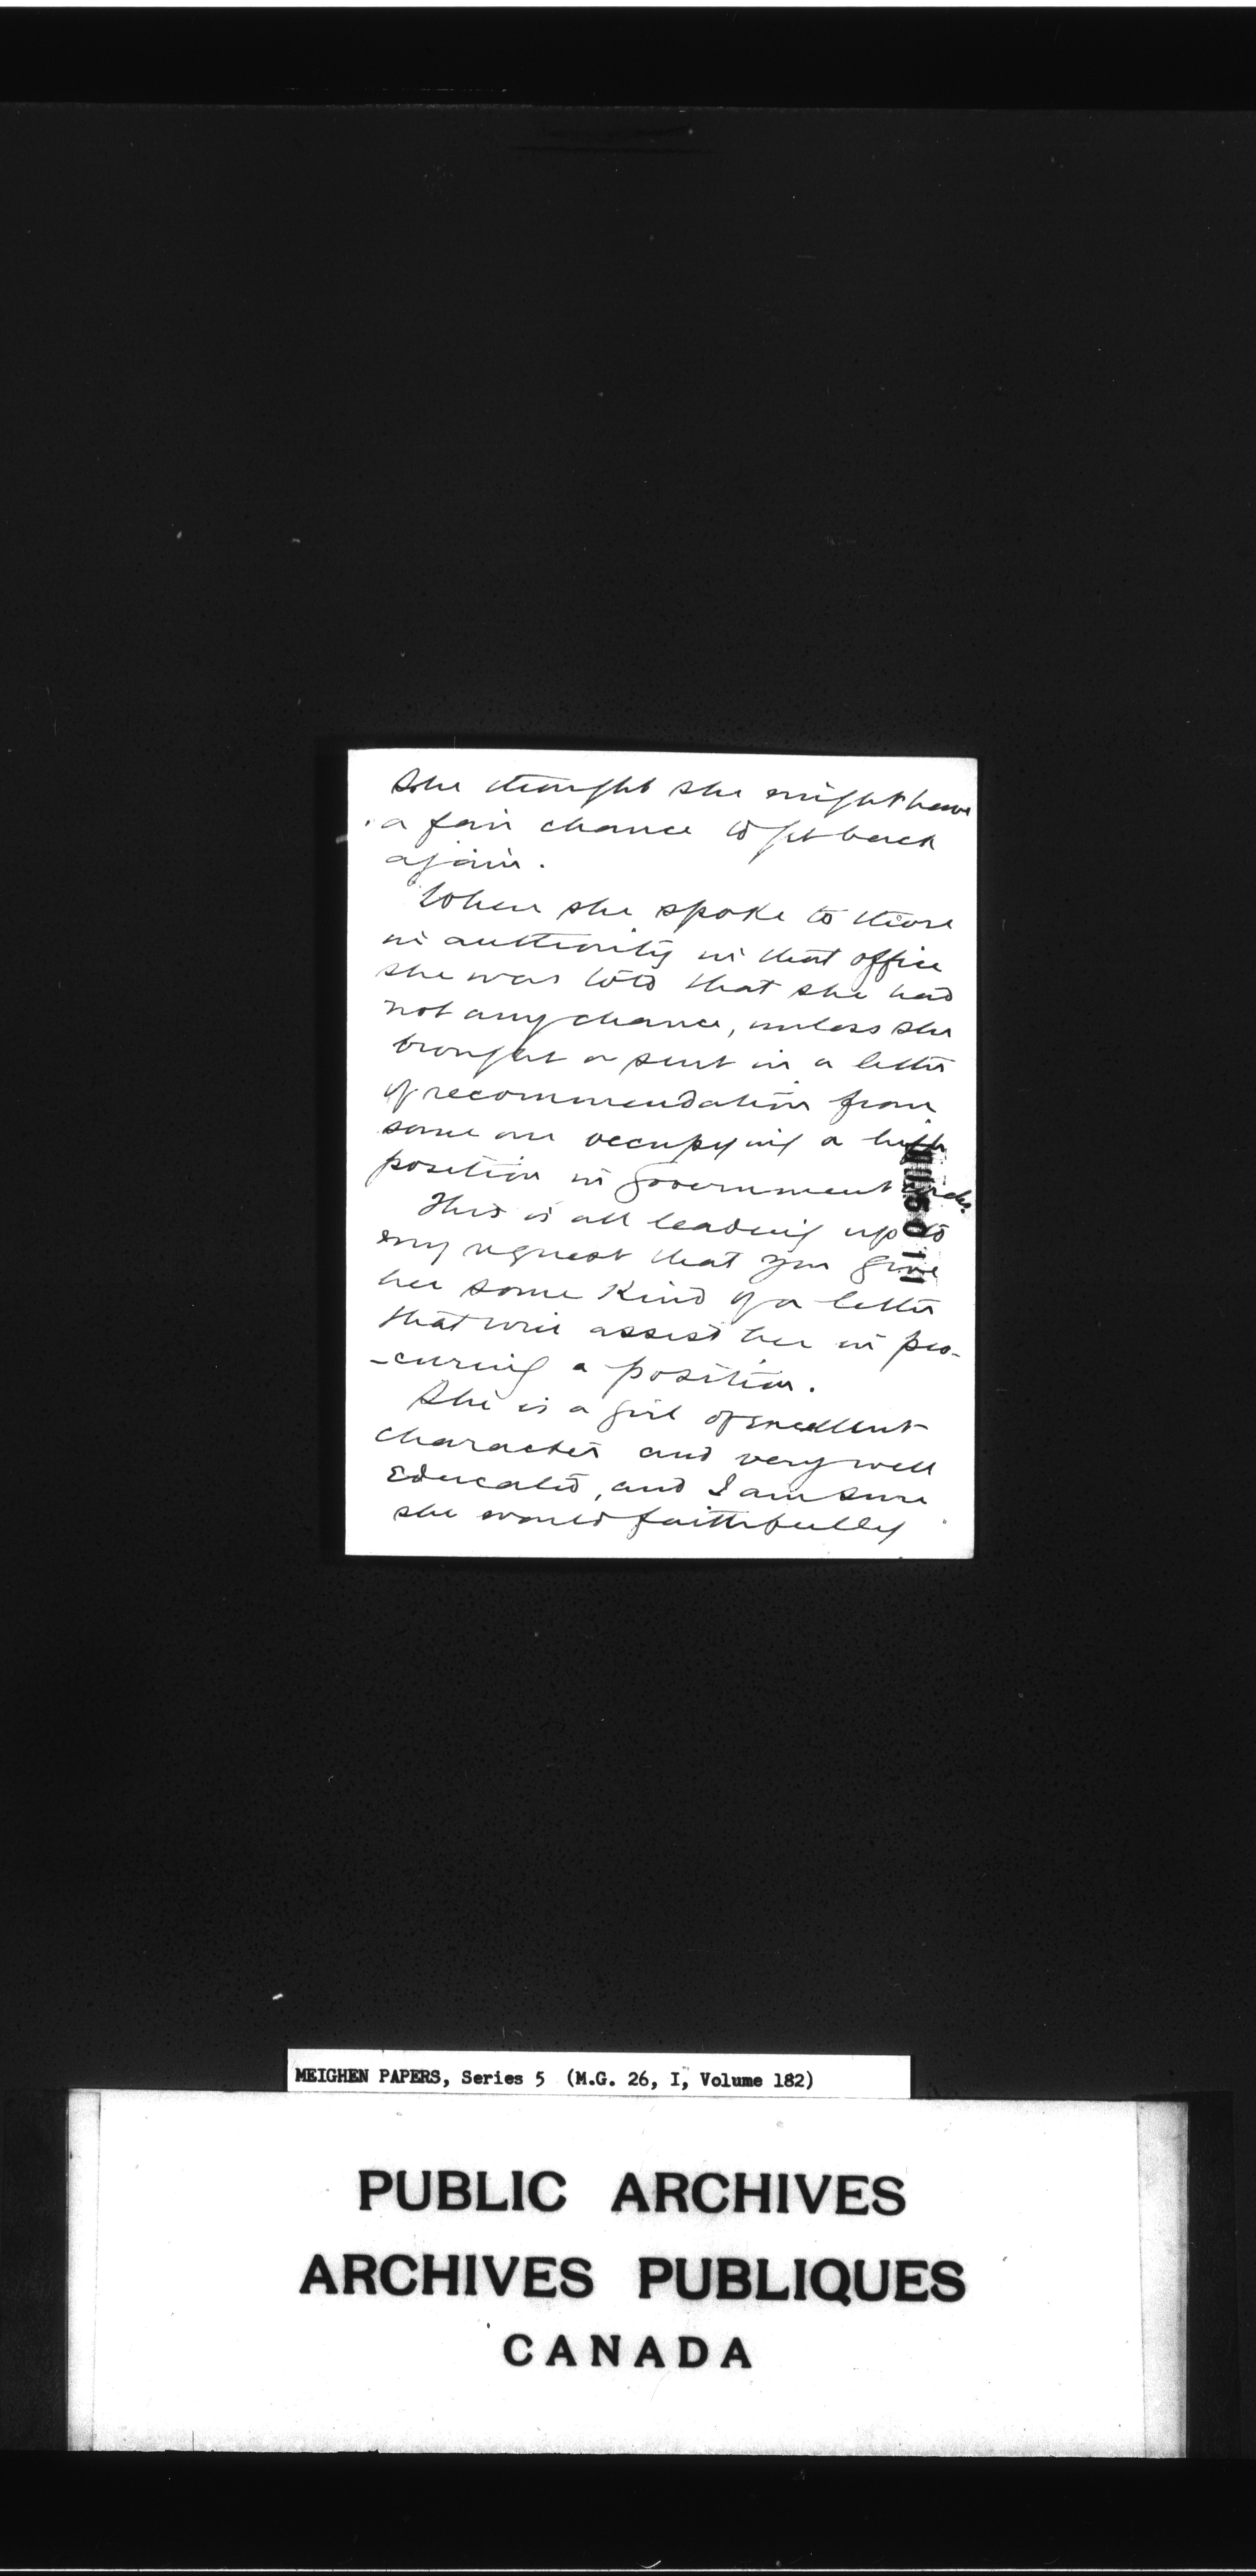 She thought she might have
a fair chance to get back
again.
When she spoke to those
in authority in that office
she was told that she had
not any chance, unless she
brought or sent in a letter
of recommendation from
some one occupying a high
position in Government
This is all leading up to
my request that you give
her some kind of a letter
that will assist her in pro-
-curing a position.
She is a girl of excellent
character and very well
educated, and I am sure
she would faithfully
MEIGHEN PAPERS, Series 5 (M.G. 26, I, Volume 182)
PUBLIC ARCHIVES
ARCHIVES PUBLIQUES
CANADA